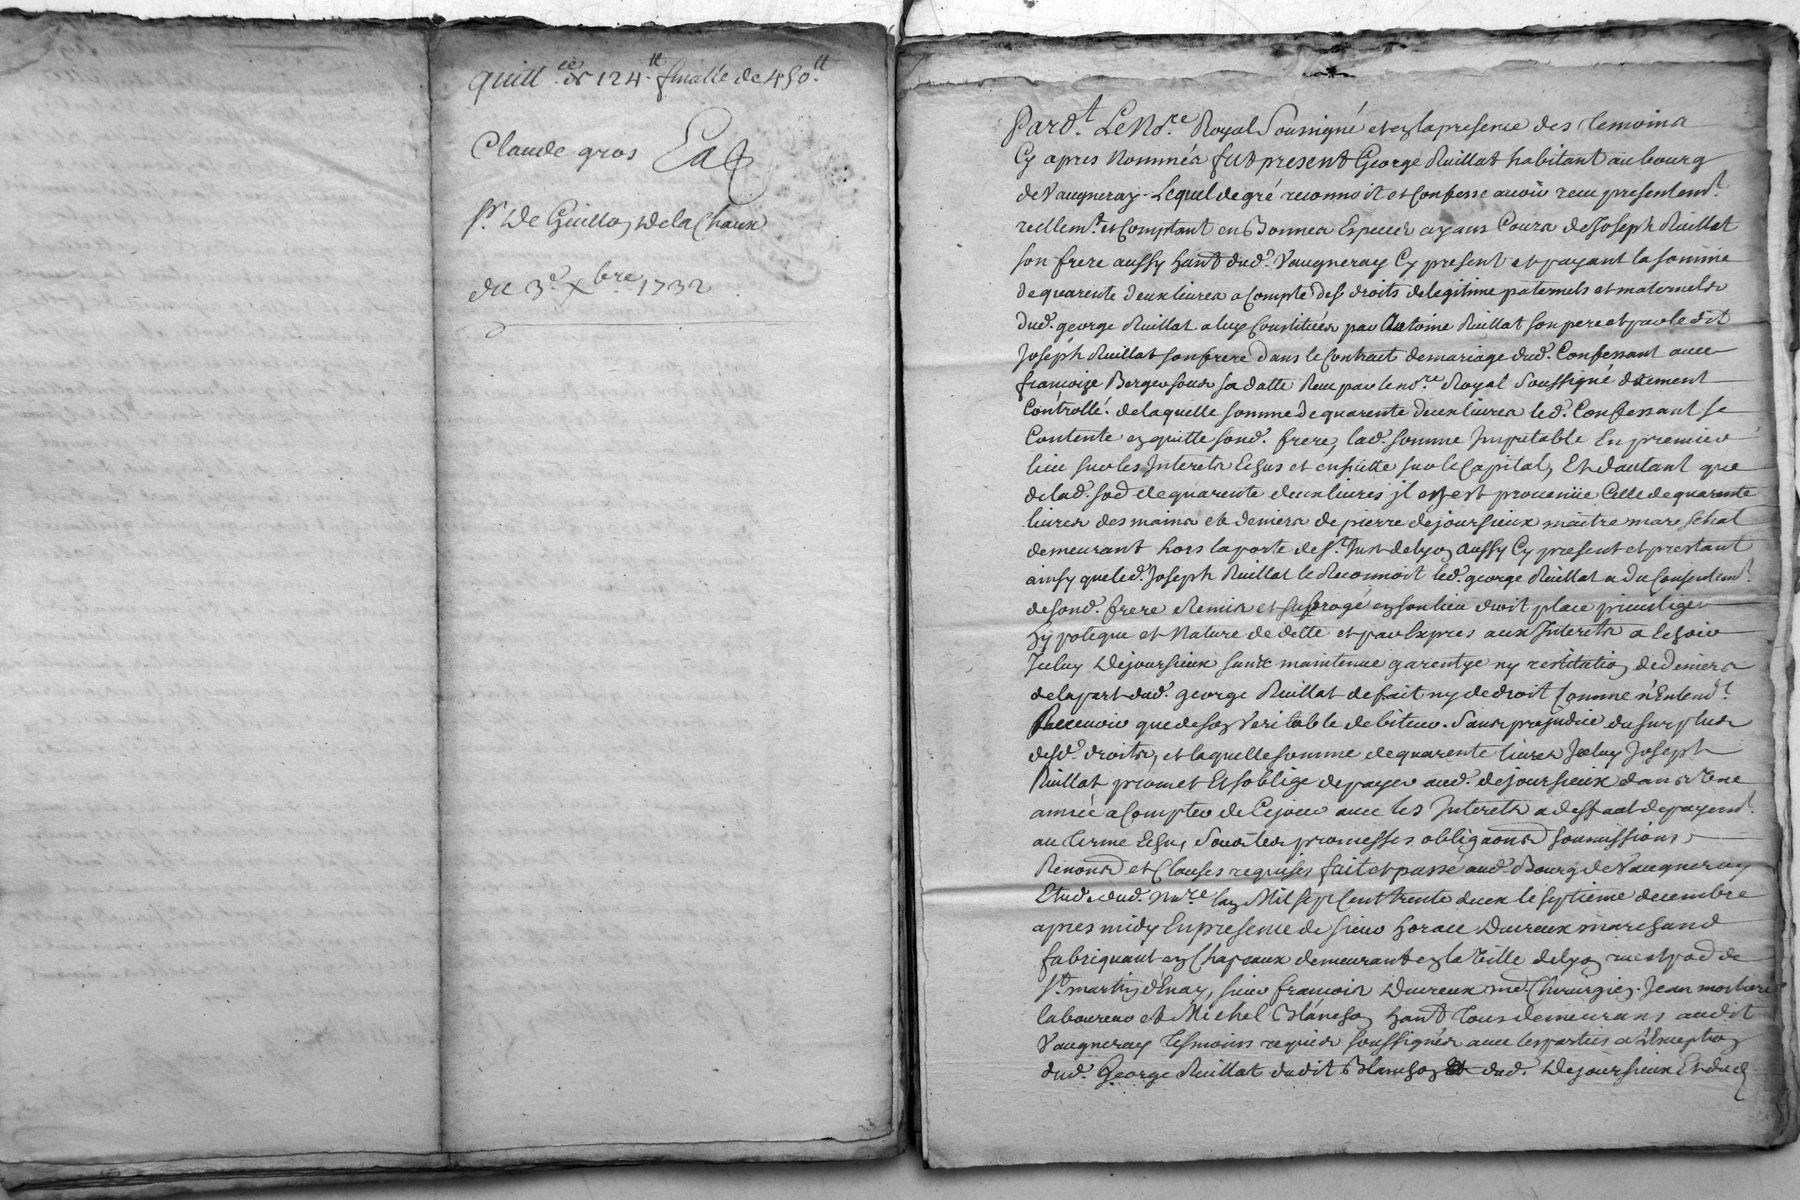 quitt.ce de 124.tt finalle de 450.tt
Claude gros
Sr. De Guillon Delachaux
du 3.e Xbre 1732
Pard.t Le No.re Royal Soussigné et en la presence des temoins
Cy apres Nommés fut present George Ruillat habitant au bourg
de Vaugneray. Lequel de gré reconnoit et Confesse avoir receu presentem.t
reellem.t et Comptant en Bonnes Especes ayans Cours de Joseph Ruillat
son frere aussy hant dud. Vaugneray Cy present et payant la somme
de quarente deux livres a Compte des droits de legitime paternels et maternels
dud. george Ruillat a luy Constitués par Antoine Ruillat son pere et par le dit
Joseph Ruillat son frere dans le Contrat de mariage dud. Confessant avec
françoize Berger sous sa datte Receu par le no.re Royal Soussigné duement
Controllé. de laquelle somme de quarente deux livres led. Confessant se
Contente en quitte sond. frere, lad. somme Imputable En premier
lieu sur les Interets Echus et ensuitte sur le Capital, Et d'autant que
de lad. so.e de quarente deux livres il en est provenüe Celle de quarente
livres des mains et deniers de pierre dejoursieux maitre mareschal
demeurant hors la porte de S.t Just de Lyon aussy Cy present et prestant
ainsy que led. Joseph Ruillat le Reconnoit led. george Ruillat a du Consentem.t
de sond. frere Remis et subrogé en son lieu droit place privilege
hypoteque et Nature de dette et par Expres aux Interets a Echoir
Iceluy Dejoursieux sans maintenue garentye ny restitution de deniers
de la part dud. george Ruillat de fait ny de droit Comme n'Entend.t
Recevoir que de son veritable debiteur. Sans prejudice du surplus
desd. droits, et laquelle somme de quarente livres Iceluy Joseph
Ruillat promet Et s'oblige de payer aud. dejoursieux dans Une
année a Compter de Ce jour avec les Interets a deffaut de payem.t
au terme Echu, Sous les promesses obligaons soumissions
Renons et Clauses requises fait et passé aud. Bourg de Vaugneray
Etude dud. no.re l'an Mil sept Cent trente deux le septieme decembre
apres midy En presence de sieur horace Ducreux marchand
fabriquant en Chapeaux demeurant en la Ville de Lyon rue et de
S.t martin d'Enay, sieur francois Ducreux me Chirurgien. Jean
laboureur et Michel Blanchon hant tous demeurans audit
Vaugneray tesmoins requis soussignés avec les parties a l'Exception
dud. George Ruillat dudit Blanchon et dud. Dejoursieux Et